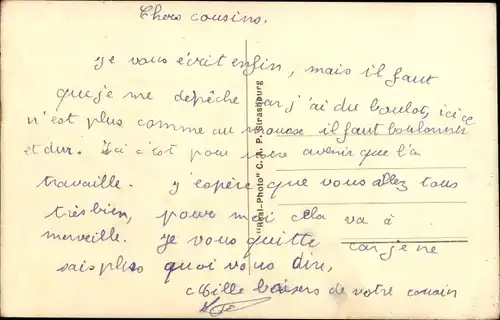 Chers cousins.
je vous écrit enfin, mais il faut
que je me dépêche car j'ai du boulot, ici ce
n'est plus comme au mousse il faut boulonner
et dur. Ici c'est pour notre avenir que l'on
travaille. j'espère que vous allez tous
très bien, pour moi cela va à
merveille. je vous quitte car je ne
sais plus quoi vous dire,
Mille baisers de votre cousin
"Real-Photo" C. A. P. Strasbourg